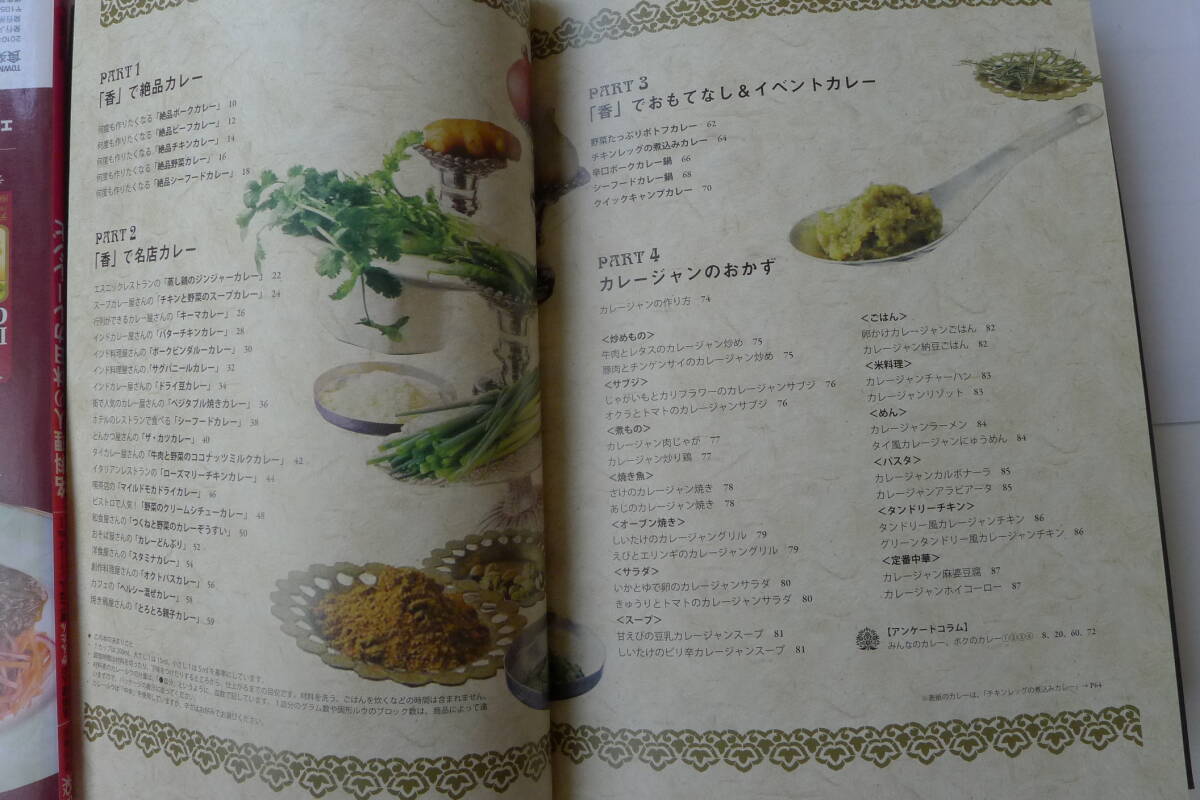 PART 1
「香」で絶品カレー
何度も作りたくなる「絶品ポークカレー」 10
何度も作りたくなる「絶品ビーフカレー」 12
何度も作りたくなる「絶品チキンカレー」 14
何度も作りたくなる「絶品野菜カレー」 16
何度も作りたくなる「絶品シーフードカレー」 18
PART 2
「香」で名店カレー
エスニックレストランの「蒸し鶏のジンジャーカレー」 22
スープカレー屋さんの「チキンと野菜のスープカレー」 24
行列ができるカレー屋さんの「キーマカレー」 26
インドカレー屋さんの「バターチキンカレー」 28
インド料理屋さんの「ポークビンダルーカレー」 30
インド料理屋さんの「サグパニールカレー」 32
インドカレー屋さんの「ドライ豆カレー」 34
街で人気のカレー屋さんの「ベジタブル焼きカレー」 36
ホテルのレストランで食べる「シーフードカレー」 38
とんかつ屋さんの「ザ・カツカレー」 40
タイカレー屋さんの「牛肉と野菜のココナッツミルクカレー」 42
イタリアンレストランの「ローズマリーチキンカレー」 44
喫茶店の「マイルドモカドライカレー」 46
ビストロで人気!「野菜のクリームシチューカレー」 48
和食屋さんの「つくねと野菜のカレーぞうすい」 50
おそば屋さんの「カレーどんぶり」 52
洋食屋さんの「スタミナカレー」 54
創作料理屋さんの「オクトパスカレー」 56
カフェの「ヘルシー混ぜカレー」 58
焼き鳥屋さんの「とろとろ親子カレー」 59
PART 3
「香」でおもてなし&イベントカレー
野菜たっぷりポトフカレー 62
チキンレッグの煮込みカレー 64
辛口ポークカレー鍋 66
シーフードカレー鍋 68
クイックキャンプカレー 70
PART 4
カレージャンのおかず
カレージャンの作り方 74
<炒めもの>
牛肉とレタスのカレージャン炒め 75
豚肉とチンゲンサイのカレージャン炒め 75
<サブジ>
じゃがいもとカリフラワーのカレージャンサブジ 76
オクラとトマトのカレージャンサブジ 76
<煮もの>
カレージャン肉じゃが 77
カレージャン炒り鶏 77
<焼き魚>
さけのカレージャン焼き 78
あじのカレージャン焼き 78
<オーブン焼き>
しいたけのカレージャングリル 79
えびとエリンギのカレージャングリル 79
<サラダ>
いかとゆで卵のカレージャンサラダ 80
きゅうりとトマトのカレージャンサラダ 80
<スープ>
甘えびの豆乳カレージャンスープ 81
しいたけのピリ辛カレージャンスープ 81
<ごはん>
卵かけカレージャンごはん 82
カレージャン納豆ごはん 82
<米料理>
カレージャンチャーハン 83
カレージャンリゾット 83
<めん>
カレージャンラーメン 84
タイ風カレージャンにゅうめん 84
<パスタ>
カレージャンカルボナーラ 85
カレージャンアラビアータ 85
<タンドリーチキン>
タンドリー風カレージャンチキン 86
グリーンタンドリー風カレージャンチキン 86
<定番中華>
カレージャン麻婆豆腐 87
カレージャンホイコーロー 87
【アンケートコラム】
みんなのカレー、ボクのカレー①②③④ 8、20、60、72
※表紙のカレーは、「チキンレッグの煮込みカレー」→P64